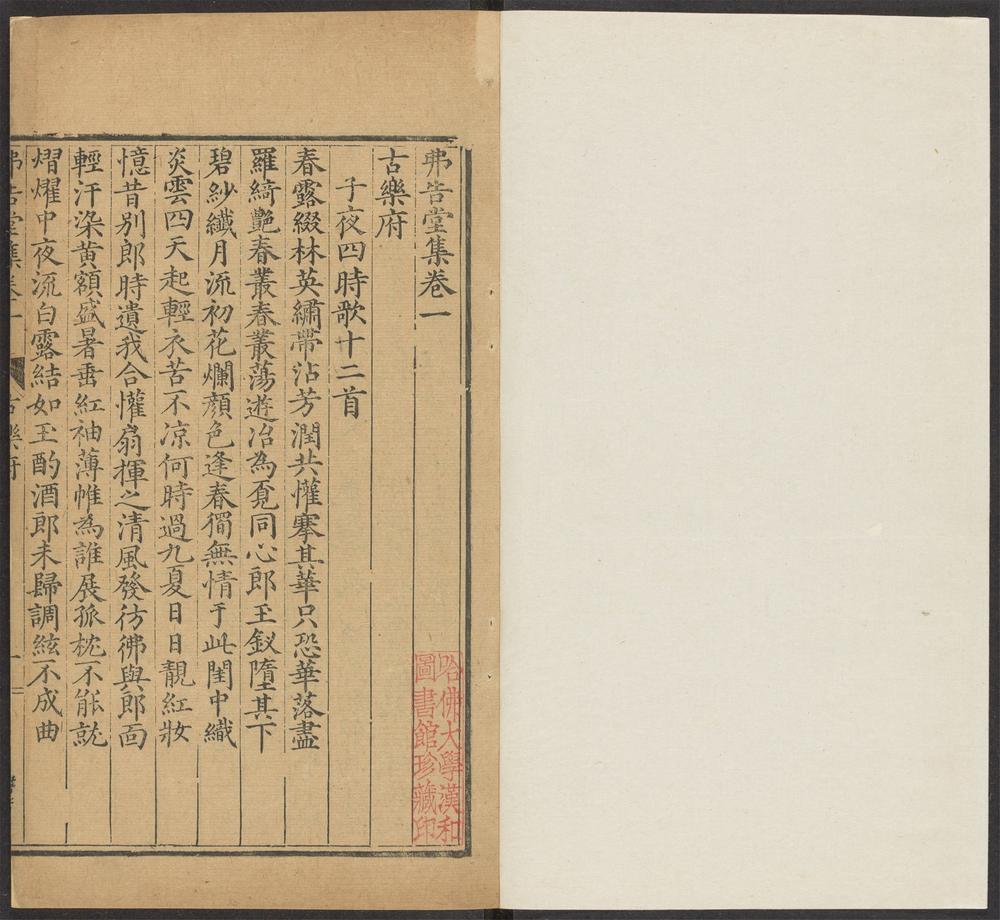 弗告堂集卷一
古樂府
子夜四時歌十二首
春露綴林英繡帶沾芳潤共懽搴其華只恐華落盡
羅綺艷春叢春叢蕩遊冶為覓同心郎玉釵墮其下
碧紗纖月流初花爛顏色逢春獨無情于此閨中織
炎雲四天起輕衣苦不凉何時過九夏日日靚紅妝
憶昔別郎時遺我合懽扇揮之清風發彷彿與郎面
輕汗染黃額盛暑垂紅袖薄帷為誰展孤枕不能就
熠燿中夜流白露結如玉酌酒郎未歸調絃不成曲
弗告堂集卷一
古樂府
一
哈佛大學漢和
圖書館珍藏印